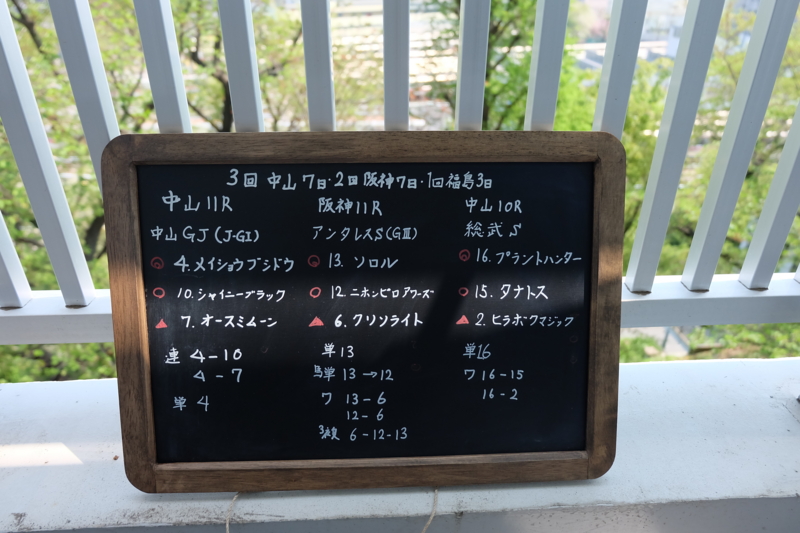 3回 中山7日・2回 阪神7日・1回福島3日
中山11R
中山GJ(J・GI)
◎ 4.メイショウブシドウ
○ 10.シャイニーブラック
▲ 7.オースミムーン
連 4-10
4-7
単 4
阪神11R
アンタレスS(GIII)
◎ 13.ソロル
○ 12.ニホンピロアワーズ
▲ 6.クリソライト
単13
馬単 13→12
ワ 13-6
12-6
3複 6-12-13
中山10R
総武S
◎ 16.プラントハンター
○ 15.タナトス
▲ 2.ヒラボクマジック
単16
ワ 16-15
16-2